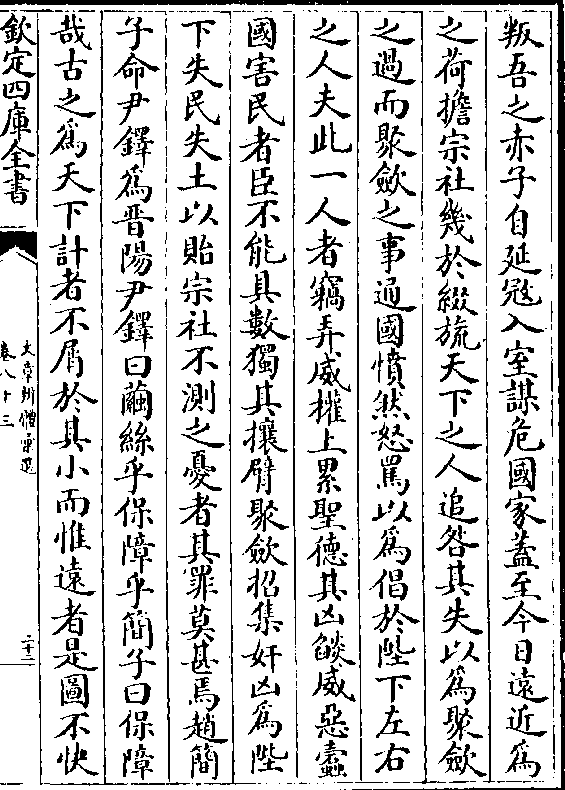 叛吾之赤子自延冦入室謀危國家蓋至今日遠近為
之荷擔宗社幾於綴旒天下之人追咎其失以為聚歛
之過而聚歛之事通國憤然怒罵以為倡於陛下左右
之人夫此一人者竊弄威權上累聖德其凶燄威惡蠹
國害民者臣不能具數獨其攘臂聚歛招集奸凶為陛
下失民失土以貽宗社不測之憂者其罪莫甚焉趙簡
子命尹鐸為晋陽尹鐸曰繭絲乎保障乎簡子曰保障
哉古之為天下計者不屑於其小而惟遠者是圖不快
欽定四庫全書
文章辨體彙選
卷八十三
二十二